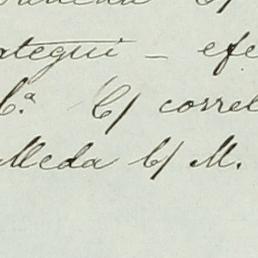 ategui — efe
C.ª C/ correl
Meda C/ M.